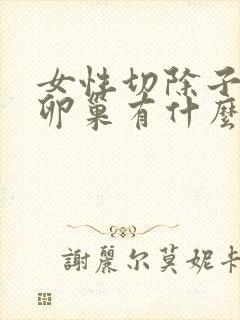 女性切除子
卵巢有什麼
謝麗尔莫妮卡